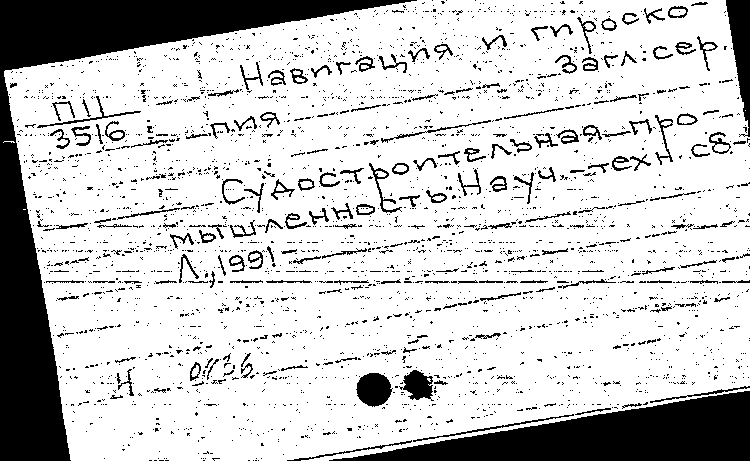 Навигация и гироско-
пия
Загл. сер.
П11
3516
Судостроительная про-
мышленность: Науч.-техн. сб-
Л., 1991-
Н